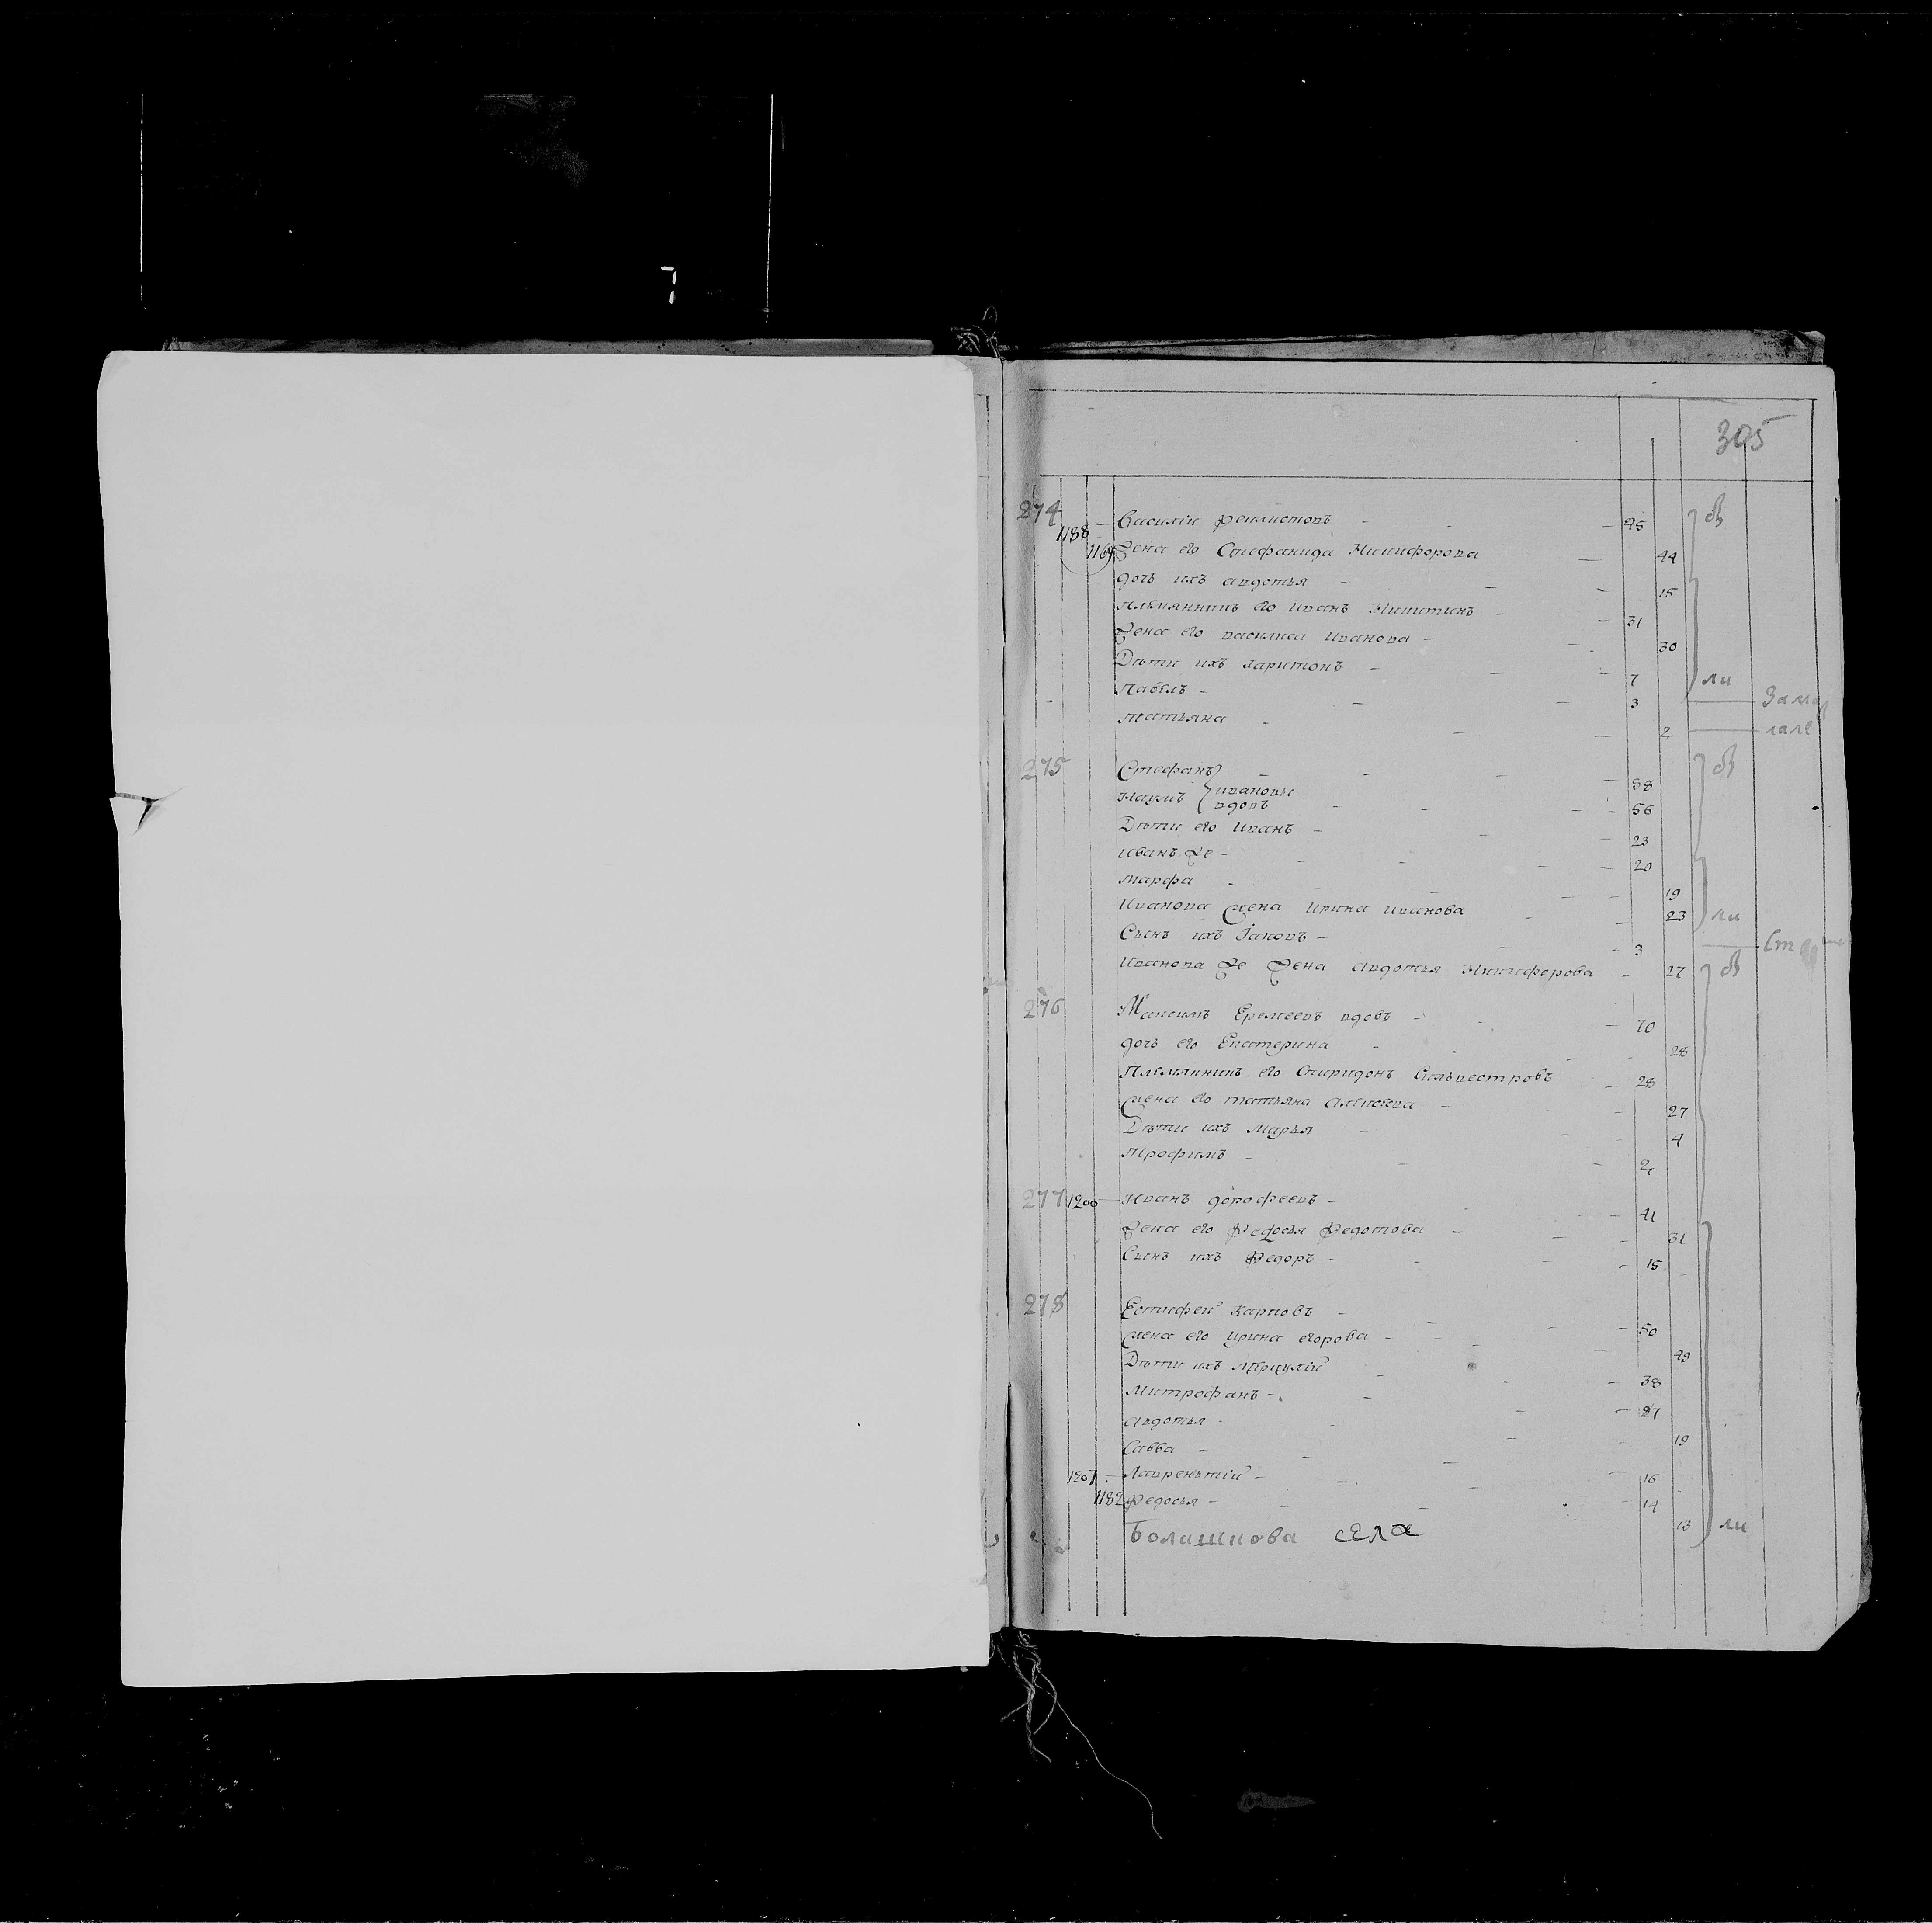 305
274 1188 Василiи 45 об
1169 Жена его Стефанида Никифорова 44
дочь ихъ авдотья 15
Племянникъ его иванъ Никитинъ 31
Жена его василиса иванова 30
Дѣти ихъ харитонъ 7 ли
Павелъ 3
татьяна 2
275 Стефанъ 58 об
Наумъ ивановы вдовъ 56
Дѣти его иванъ 23
иванъ же 20
марфа 19
иванова жена ирина иванова 23 ли
Сынъ ихъ Iаковъ 3
иванова же жена авдотья Никифорова 27 об
276 Максимъ Еремеевъ вдовъ 70
дочь его Екатерина 28
Племянникъ его Спиридонъ Сильвестровъ 28
жена его татьяна алексеева 27
Дѣти ихъ Марья 4
трофимъ 2
277 1200 иванъ дорофеевъ 41
Жена его Федосья Федотова 31
Сынъ ихъ Федоръ 15
278 Естифей карповъ 50
жена его ирина егорова 49
Дѣти ихъ 38
Митрофанъ 27
авдотья 19
Савва 16
1207 Лаврентiй 14
1182 Федосья 13 ли
села